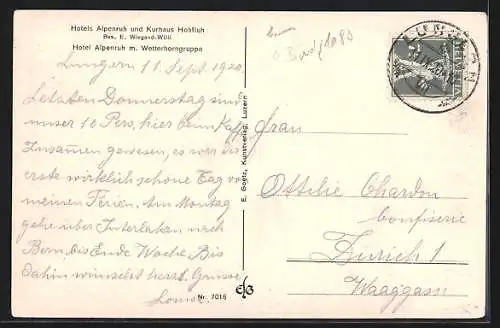 Hotels Alpenruh und Kurhaus Hohfluh
Bes. E. Wiegand-Willi
Hotel Alpenruh m. Wetterhorngruppe
Lungern 11. Sept. 1920.
Letzten Donnerstag sind
unser 10 Pers. hier beim Kaffe
Zusammen gewesen, es war der
erste wirklich schöne Tag von
meinen Ferien. Am Montag
gehe über Interlaken nach
Bern, bis Ende Woche. Bis
dahin wünscht herzl. Grüsse
Louise
E. Goetz, Kunstverlag, Luzern
Nr. 7018
EG
LUNGERN
HELVETIA
Frau
Ottilie Chardon
Confiserie
Zürich 1
Waaggasse